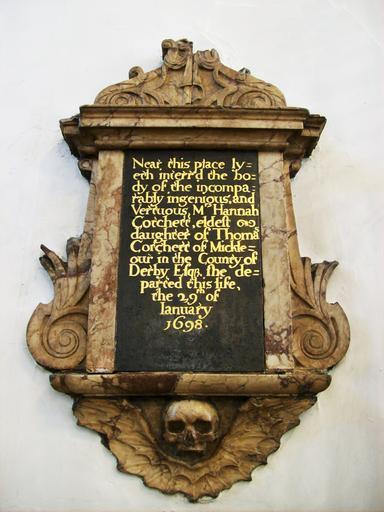 Near this place ly=
eth interr'd the bo=
dy of the incompa=
rably ingenious, and
Vertuous, Mrs Hannah
Corchett, eldest
daughter of Thomas
Corchett of Mickle=
our in the County of
Derby Esqr. she de=
parted this life,
the 29th of
Ianuary
1698.